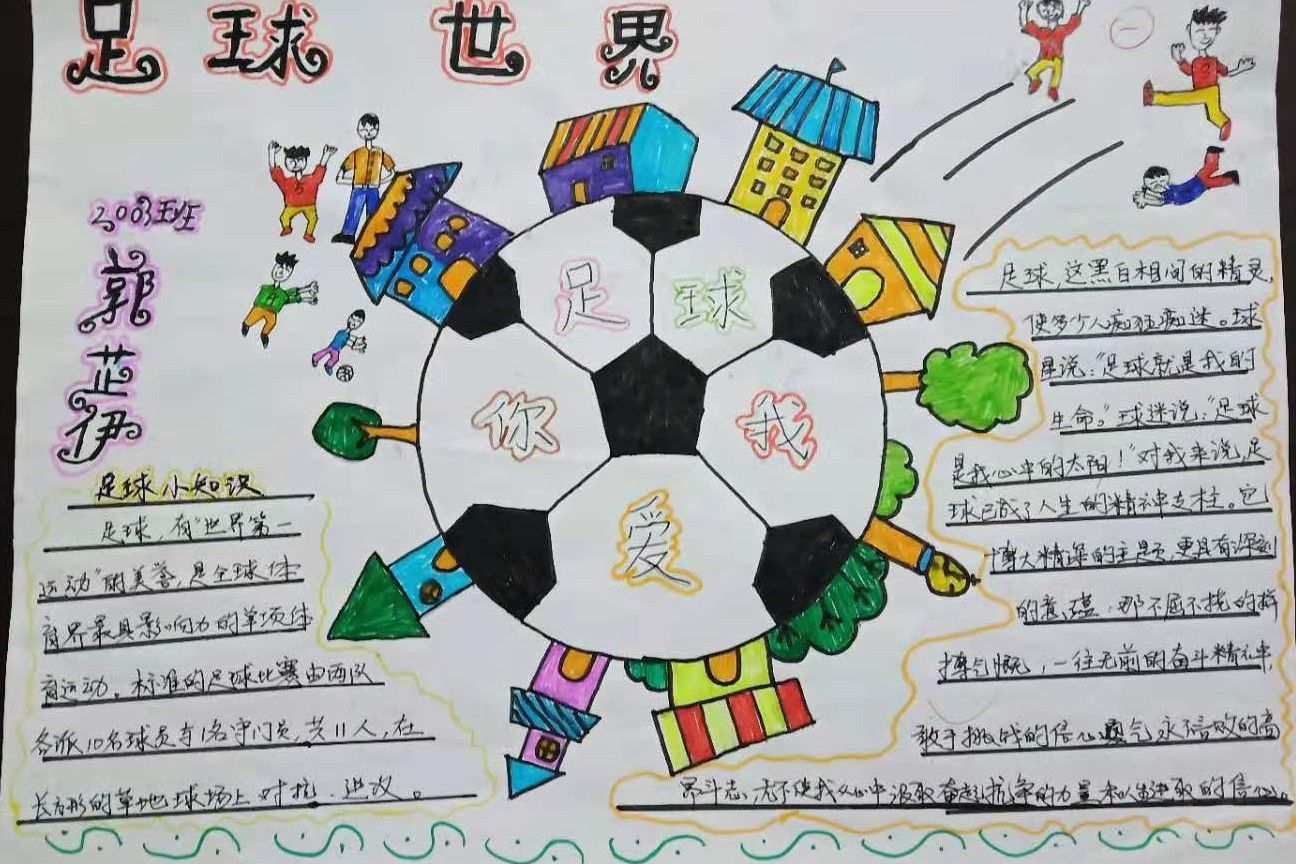 足球世界
2003班
郭芷伊
足球
你我
爱
足球小知识
足球，有"世界第一
运动"的美誉，是全球体
育界最具影响力的单项体
育运动。标准的足球比赛由两队
各派10名球员与1名守门员，共11人，在
长方形的草地球场上对抗、进攻。
足球，这黑白相间的精灵，
使多少人痴狂痴迷。球
星说："足球就是我的
生命。"球迷说："足球
是我心中的太阳！"对我来说，足
球已成了人生的精神支柱。它
博大精深的主题，更具有深刻
的意蕴：那不屈不挠的拼
搏气慨，一往无前的奋斗精神，
敢于挑战的信心勇气，永信敌的高
昂斗志，无不使我从心中汲取奋起抗争的力量和人生进取的信心。